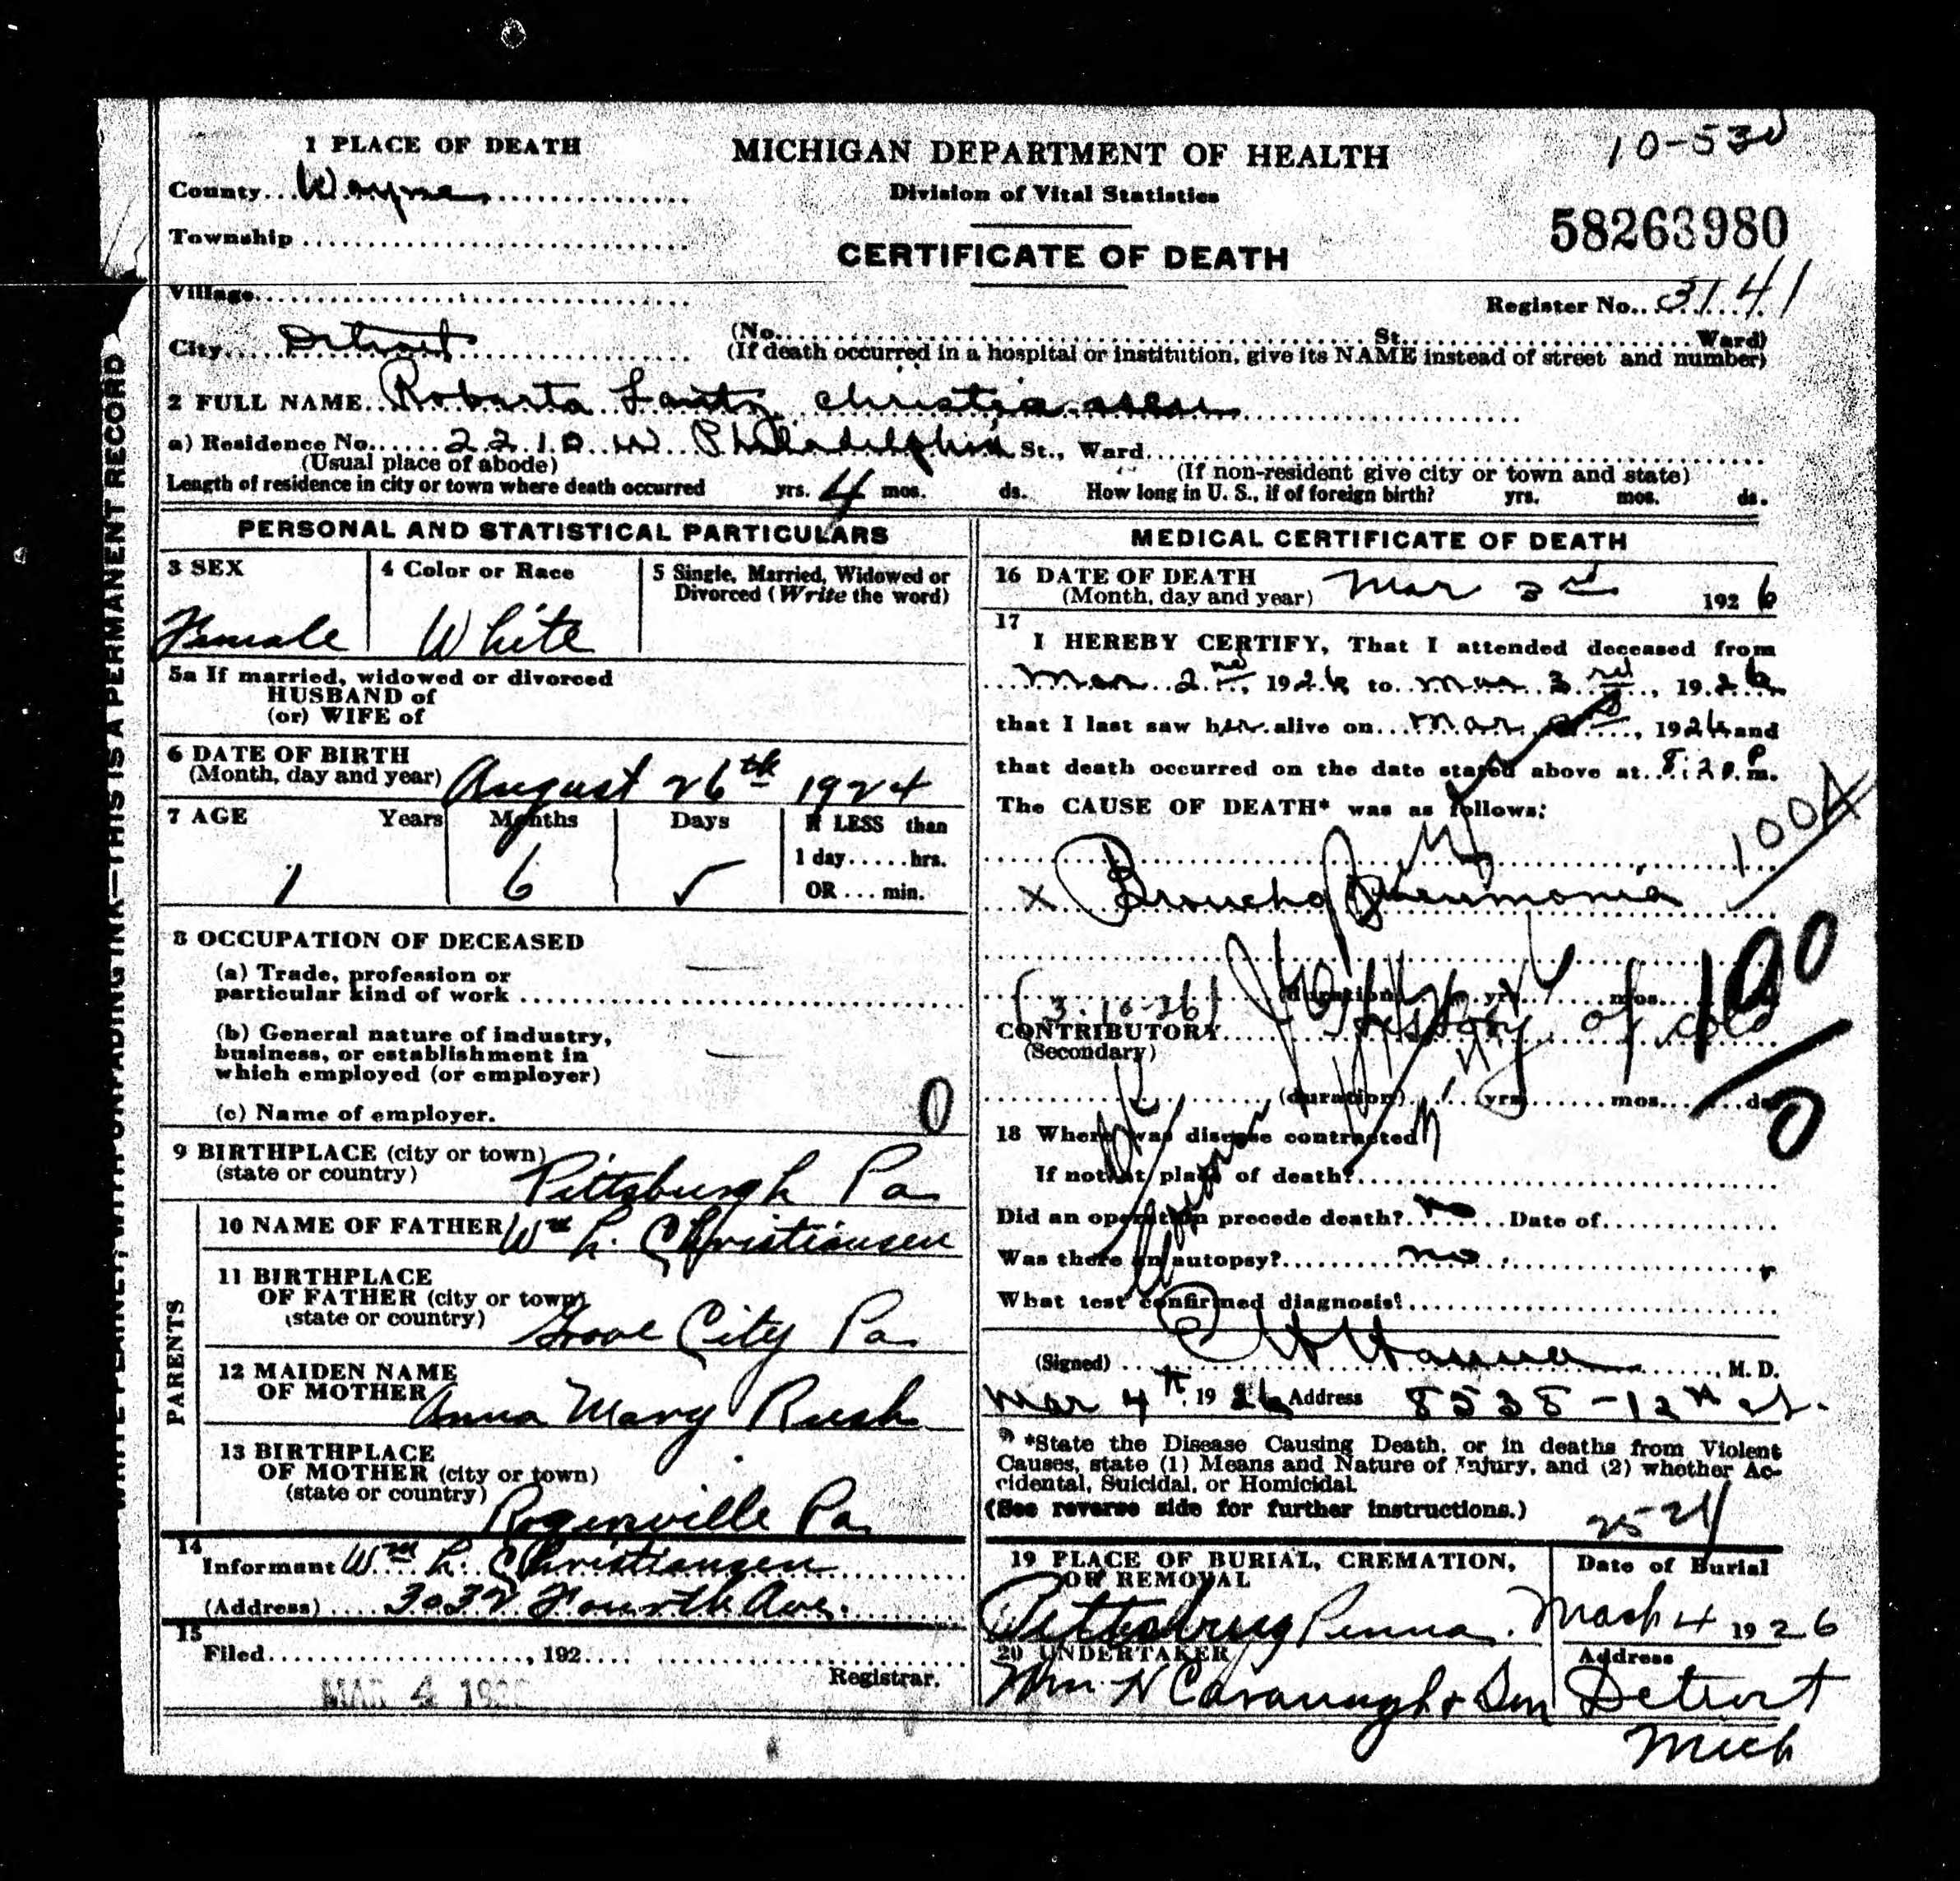 10-530
1 PLACE OF DEATH
MICHIGAN DEPARTMENT OF HEALTH
County Wayne
Division of Vital Statistics
58263980
Township
CERTIFICATE OF DEATH
Village
Register No. 3141
City Detroit (No. St. Ward)
(If death occurred in a hospital or institution, give its NAME instead of street and number)
2 FULL NAME Roberta Lantz Christiansen
a) Residence No. 2210 W Philadelphia St., Ward
(Usual place of abode) (If non-resident give city or town and state)
Length of residence in city or town where death occurred yrs. 4 mos. ds. How long in U. S., if of foreign birth? yrs. mos. ds.
PERSONAL AND STATISTICAL PARTICULARS
3 SEX
Female
4 Color or Race
White
5 Single, Married, Widowed or
Divorced (Write the word)
5a If married, widowed or divorced
HUSBAND of
(or) WIFE of
6 DATE OF BIRTH
(Month, day and year) August 26th 1924
7 AGE Years Months Days If LESS than
1 day.....hrs.
OR....min.
1 6 ✓
8 OCCUPATION OF DECEASED
(a) Trade, profession or
particular kind of work
(b) General nature of industry,
business, or establishment in
which employed (or employer)
(c) Name of employer.
0
9 BIRTHPLACE (city or town)
(state or country) Pittsburgh Pa
PARENTS
10 NAME OF FATHER Wm L. Christiansen
11 BIRTHPLACE
OF FATHER (city or town)
(state or country) Grove City Pa
12 MAIDEN NAME
OF MOTHER Anna Mary Rush
13 BIRTHPLACE
OF MOTHER (city or town)
(state or country) Rogersville Pa
14
Informant Wm L. Christiansen
(Address) 3032 Fourth Ave.
15
Filed, 192
Registrar.
MAR 4 192
MEDICAL CERTIFICATE OF DEATH
16 DATE OF DEATH
(Month, day and year) Mar 3rd 1926
17
I HEREBY CERTIFY, That I attended deceased from
Mar 2nd, 1926 to Mar 3rd, 1926
that I last saw her alive on Mar, 1926 and
that death occurred on the date stated above at 8:20 P m.
The CAUSE OF DEATH* was as follows:
100A
x Broncho Pneumonia
100
(3-10-26) (duration) yrs. mos.
CONTRIBUTORY History of cold
(Secondary)
(duration) yrs. mos. ds.
0
18 Where was disease contracted
If not at place of death?
Did an operation precede death? no Date of
Was there an autopsy? no
What test confirmed diagnosis?
(Signed) Hanna, M. D.
Mar 4th, 1926 Address 8538-12th St.
*State the Disease Causing Death, or in deaths from Violent
Causes, state (1) Means and Nature of Injury, and (2) whether Ac-
cidental, Suicidal, or Homicidal.
(See reverse side for further instructions.)
19 PLACE OF BURIAL, CREMATION,
OR REMOVAL
Pittsburg Penna.
Date of Burial
March 4 1926
20 UNDERTAKER
Wm. H Cavanaugh & Son
Address
Detroit
Mich
THIS IS A PERMANENT RECORD